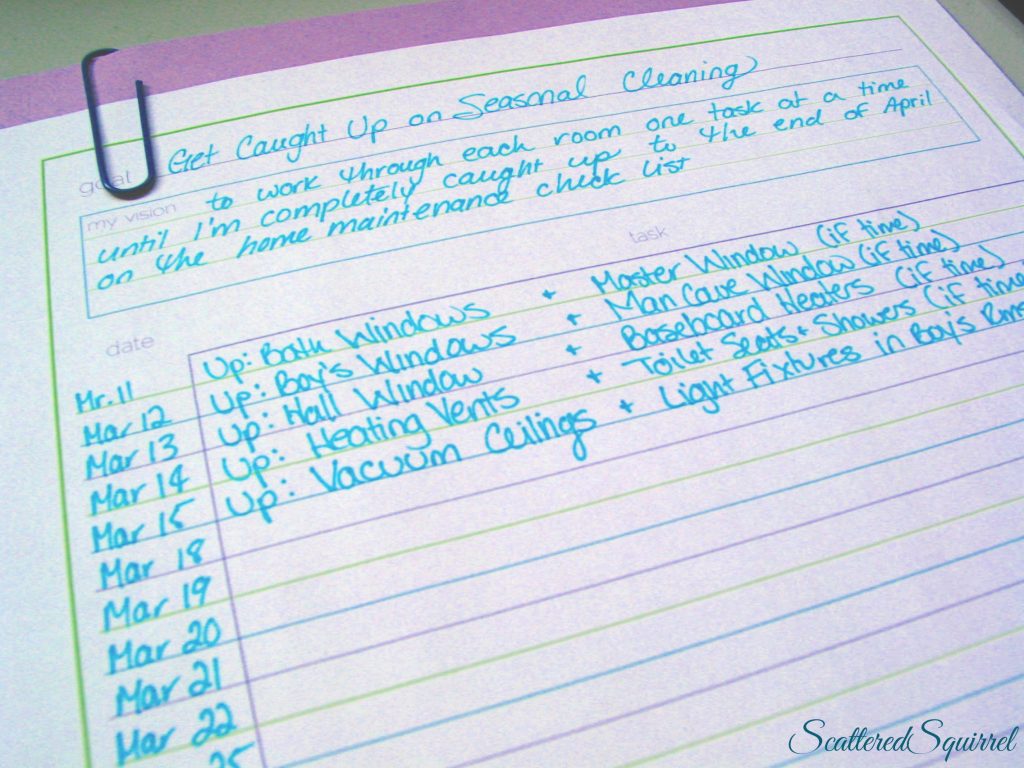 goal Get Caught Up on Seasonal Cleaning
my vision to work through each room one task at a time
until I'm completely caught up to the end of April
on the home maintenance check list
date task
Mr. 11 Up: Bath Windows + Master Window (if time)
Mar 12 Up: Boy's Windows + Man Cave Window (if time)
Mar 13 Up: Hall Window + Baseboard Heaters (if time)
Mar 14 Up: Heating Vents + Toilet Seats + Showers (if time
Mar 15 Up: Vacuum Ceilings + Light Fixtures in Boy's Rms
Mar 18
Mar 19
Mar 20
Mar 21
Mar 22
25
ScatteredSquirrel